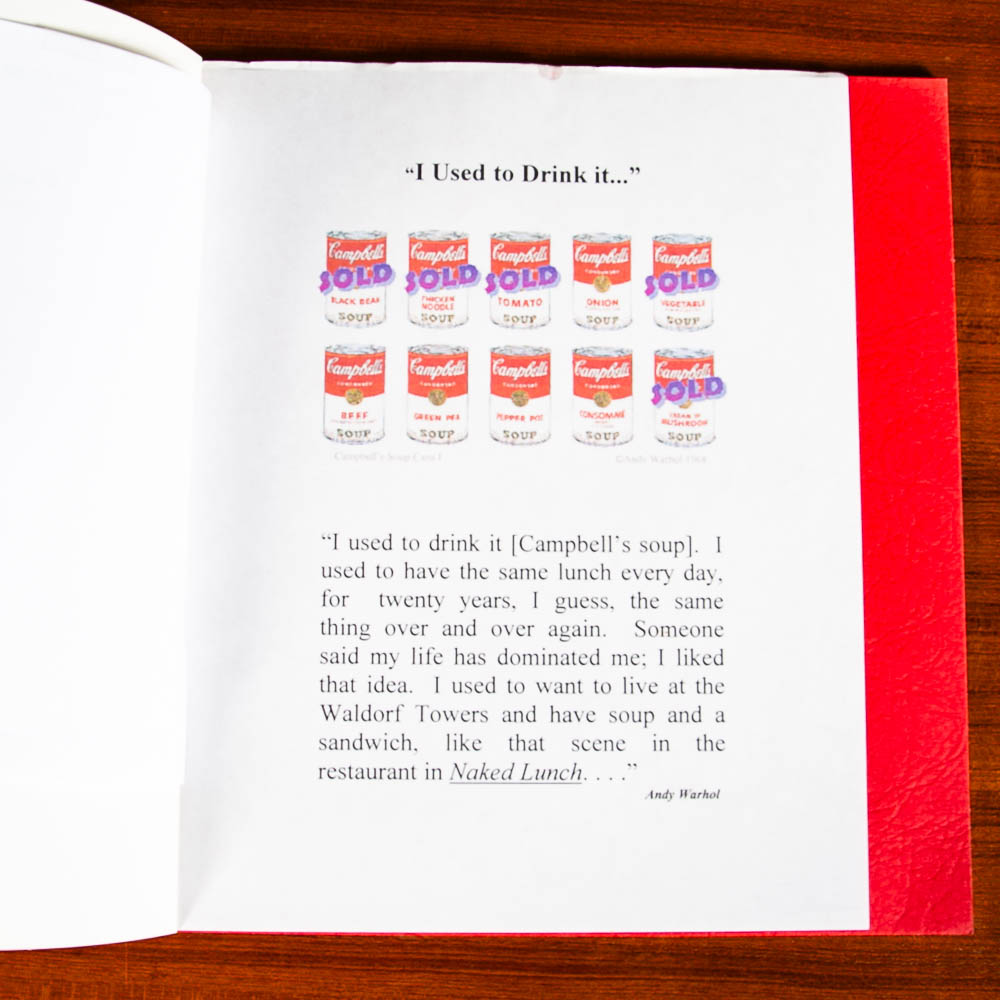 “I Used to Drink it...”
Campbell's Campbell's Campbell's Campbell's Campbell's
SOLD SOLD SOLD CONDENSED SOLD
BLACK BEAN CHICKEN NOODLE TOMATO ONION VEGETABLE
SOUP SOUP SOUP SOUP SOUP
Campbell's Campbell's Campbell's Campbell's Campbell's
CONDENSED CONDENSED CONDENSED CONDENSED SOLD
BEEF GREEN PEA PEPPER POT CONSOMMÉ CREAM OF MUSHROOM
SOUP SOUP SOUP SOUP SOUP
Campbell's Soup Cans I ©Andy Warhol 1968
“I used to drink it [Campbell’s soup]. I
used to have the same lunch every day,
for twenty years, I guess, the same
thing over and over again. Someone
said my life has dominated me; I liked
that idea. I used to want to live at the
Waldorf Towers and have soup and a
sandwich, like that scene in the
restaurant in Naked Lunch. . . .”
Andy Warhol